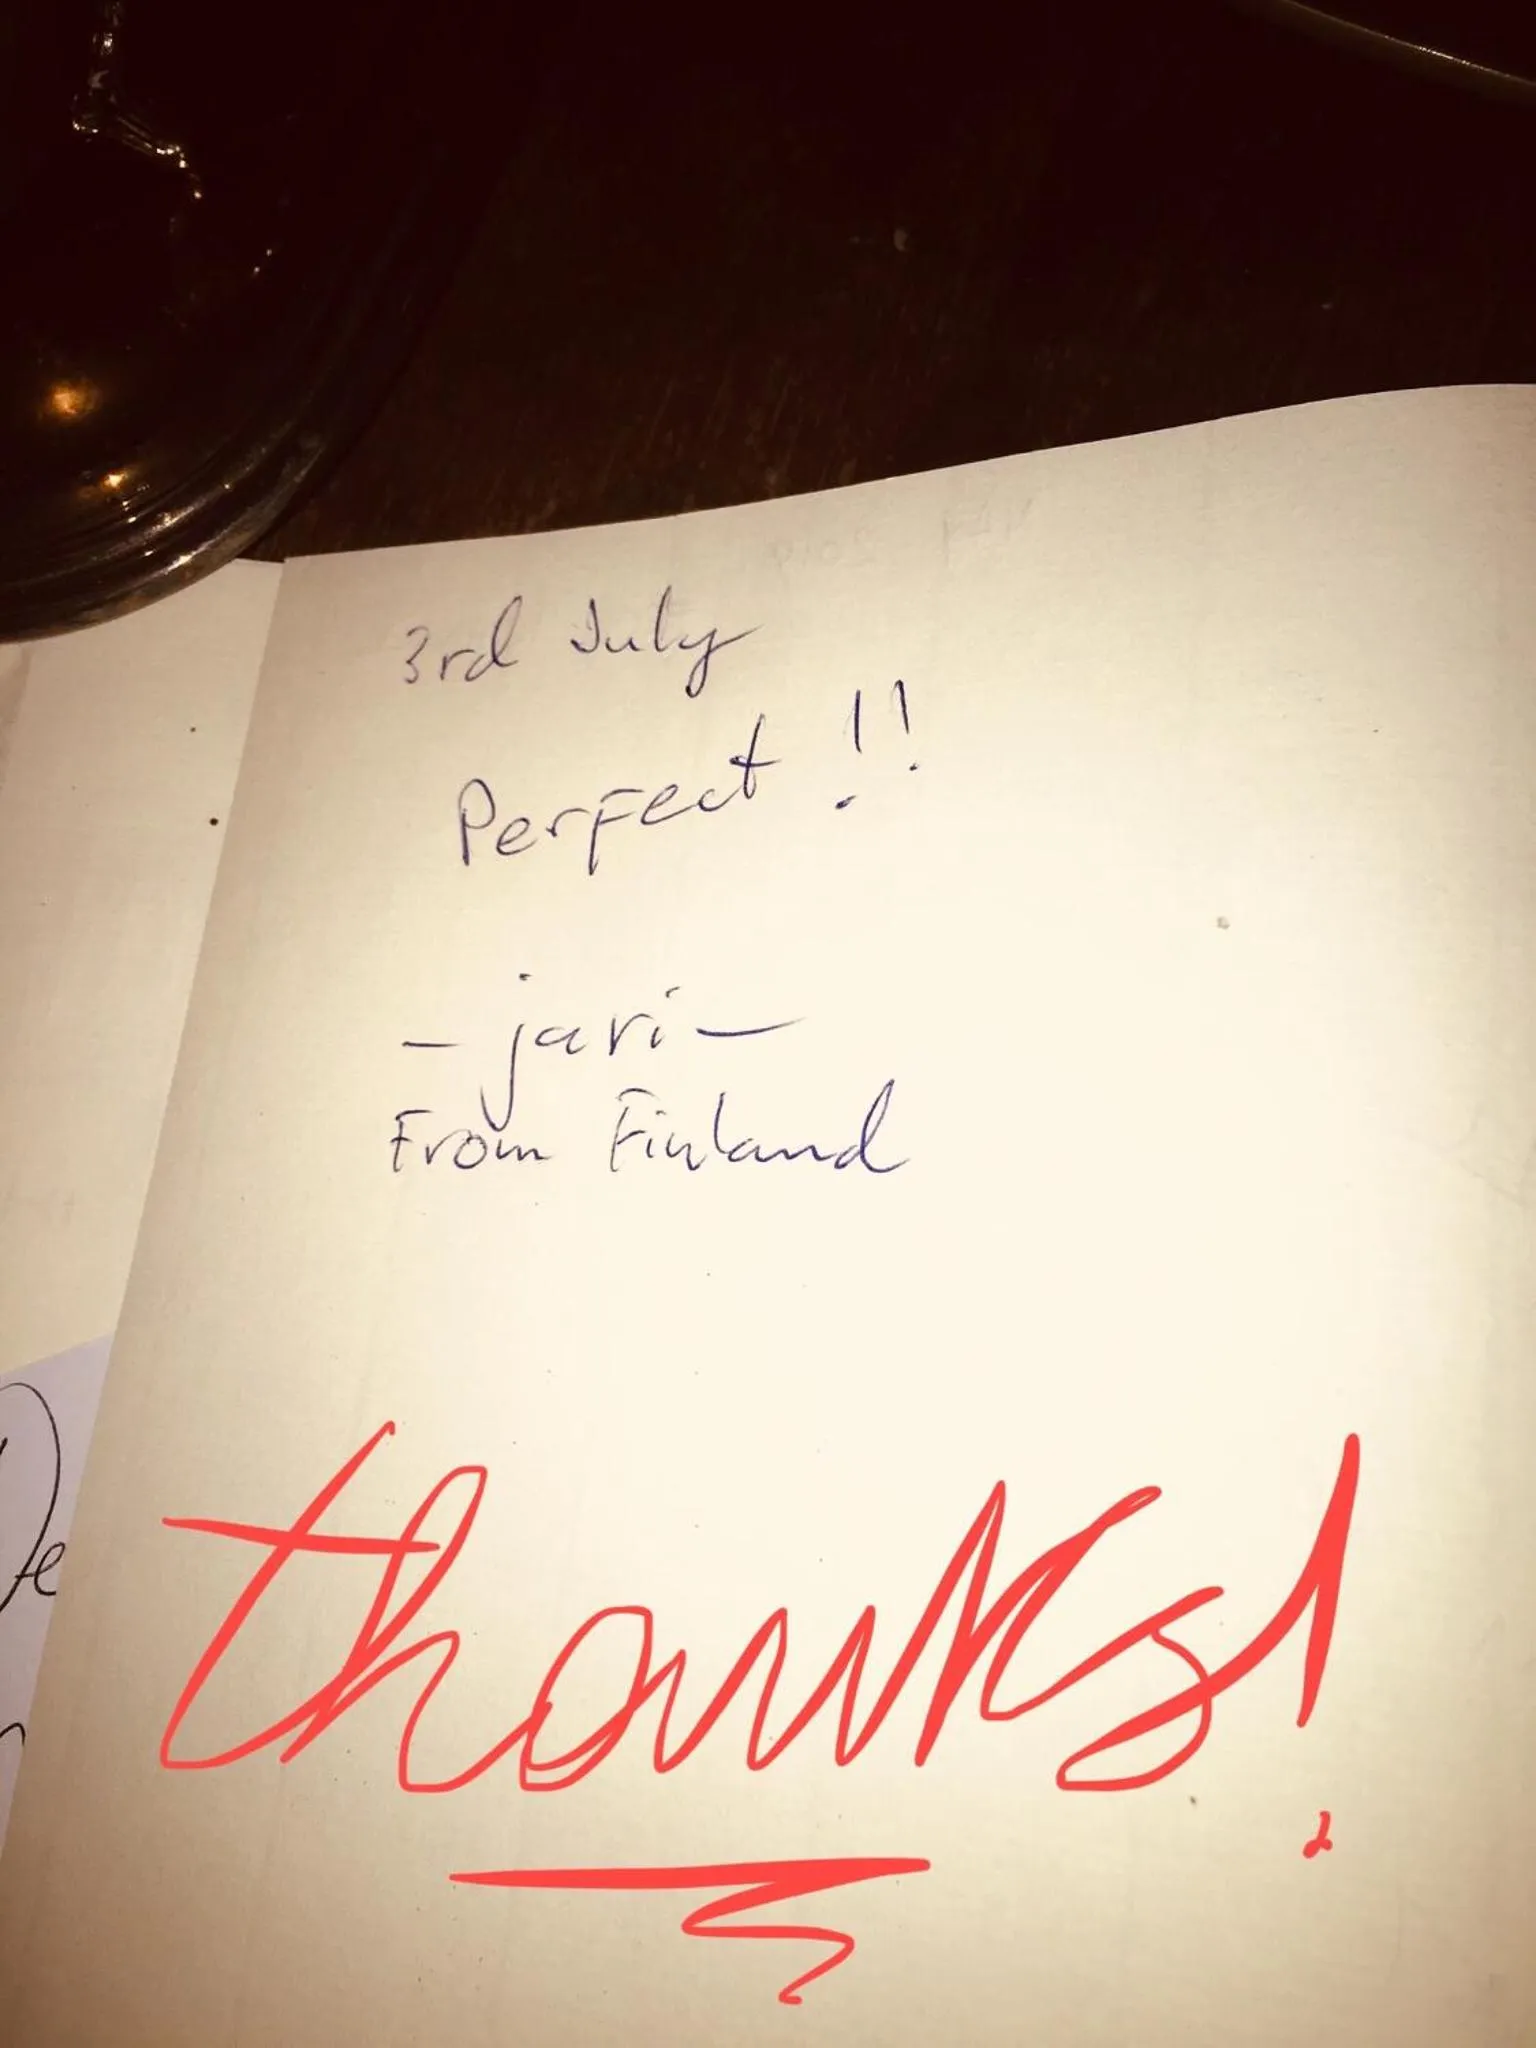 3rd July
Perfect!!
- jari -
From Finland
De
thanks!